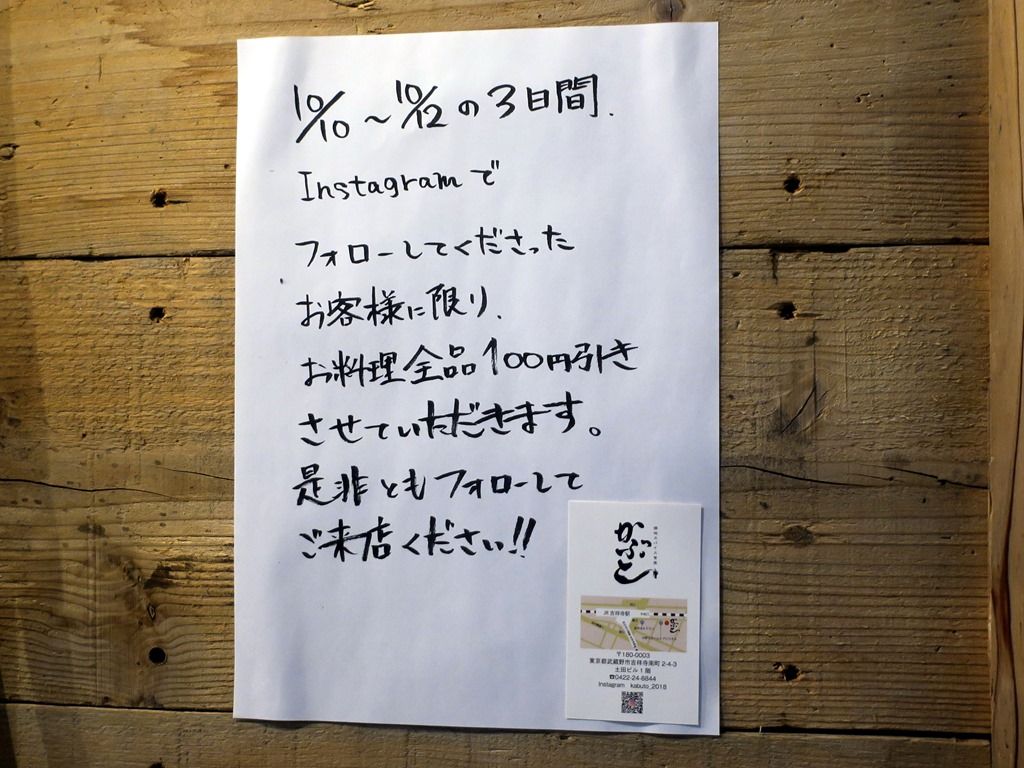 10/10〜10/12の3日間.
Instagramで
フォローしてくださった
お客様に限り、
お料理全品100円引き
させていただきます。
是非ともフォローして
ご来店ください!!
かぶと
JR 吉祥寺駅
かぶと
〒180-0003
東京都武蔵野市吉祥寺南町 2-4-3
土田ビル 1 階
☎0422-24-6844
Instagram kabuto_2018